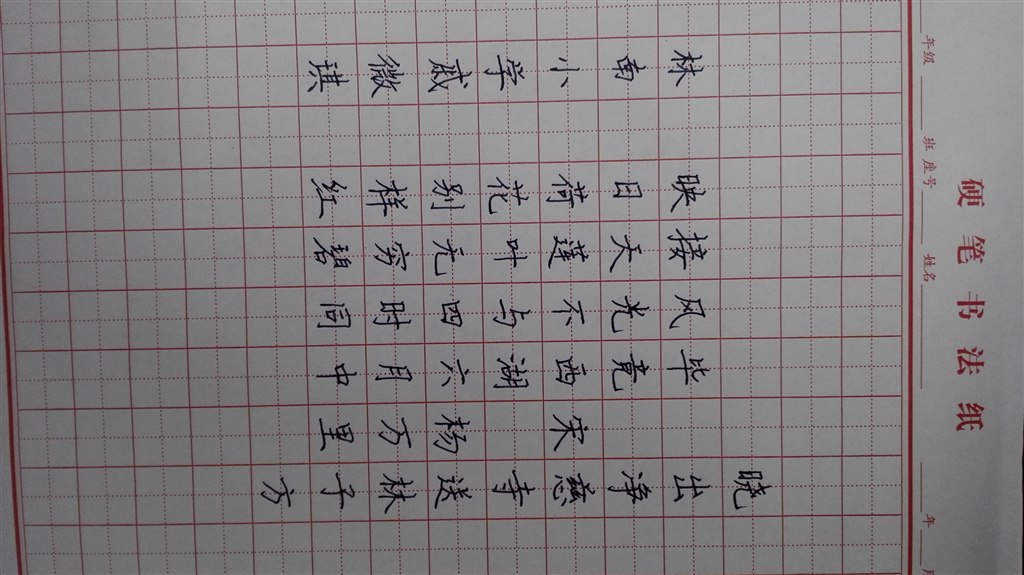 硬笔书法纸
年级 班 座号 姓名 年 月
晓出净慈寺送林子方
宋 杨万里
毕竟西湖六月中
风光不与四时同
接天莲叶无穷碧
映日荷花别样红
林南小学戚微琪